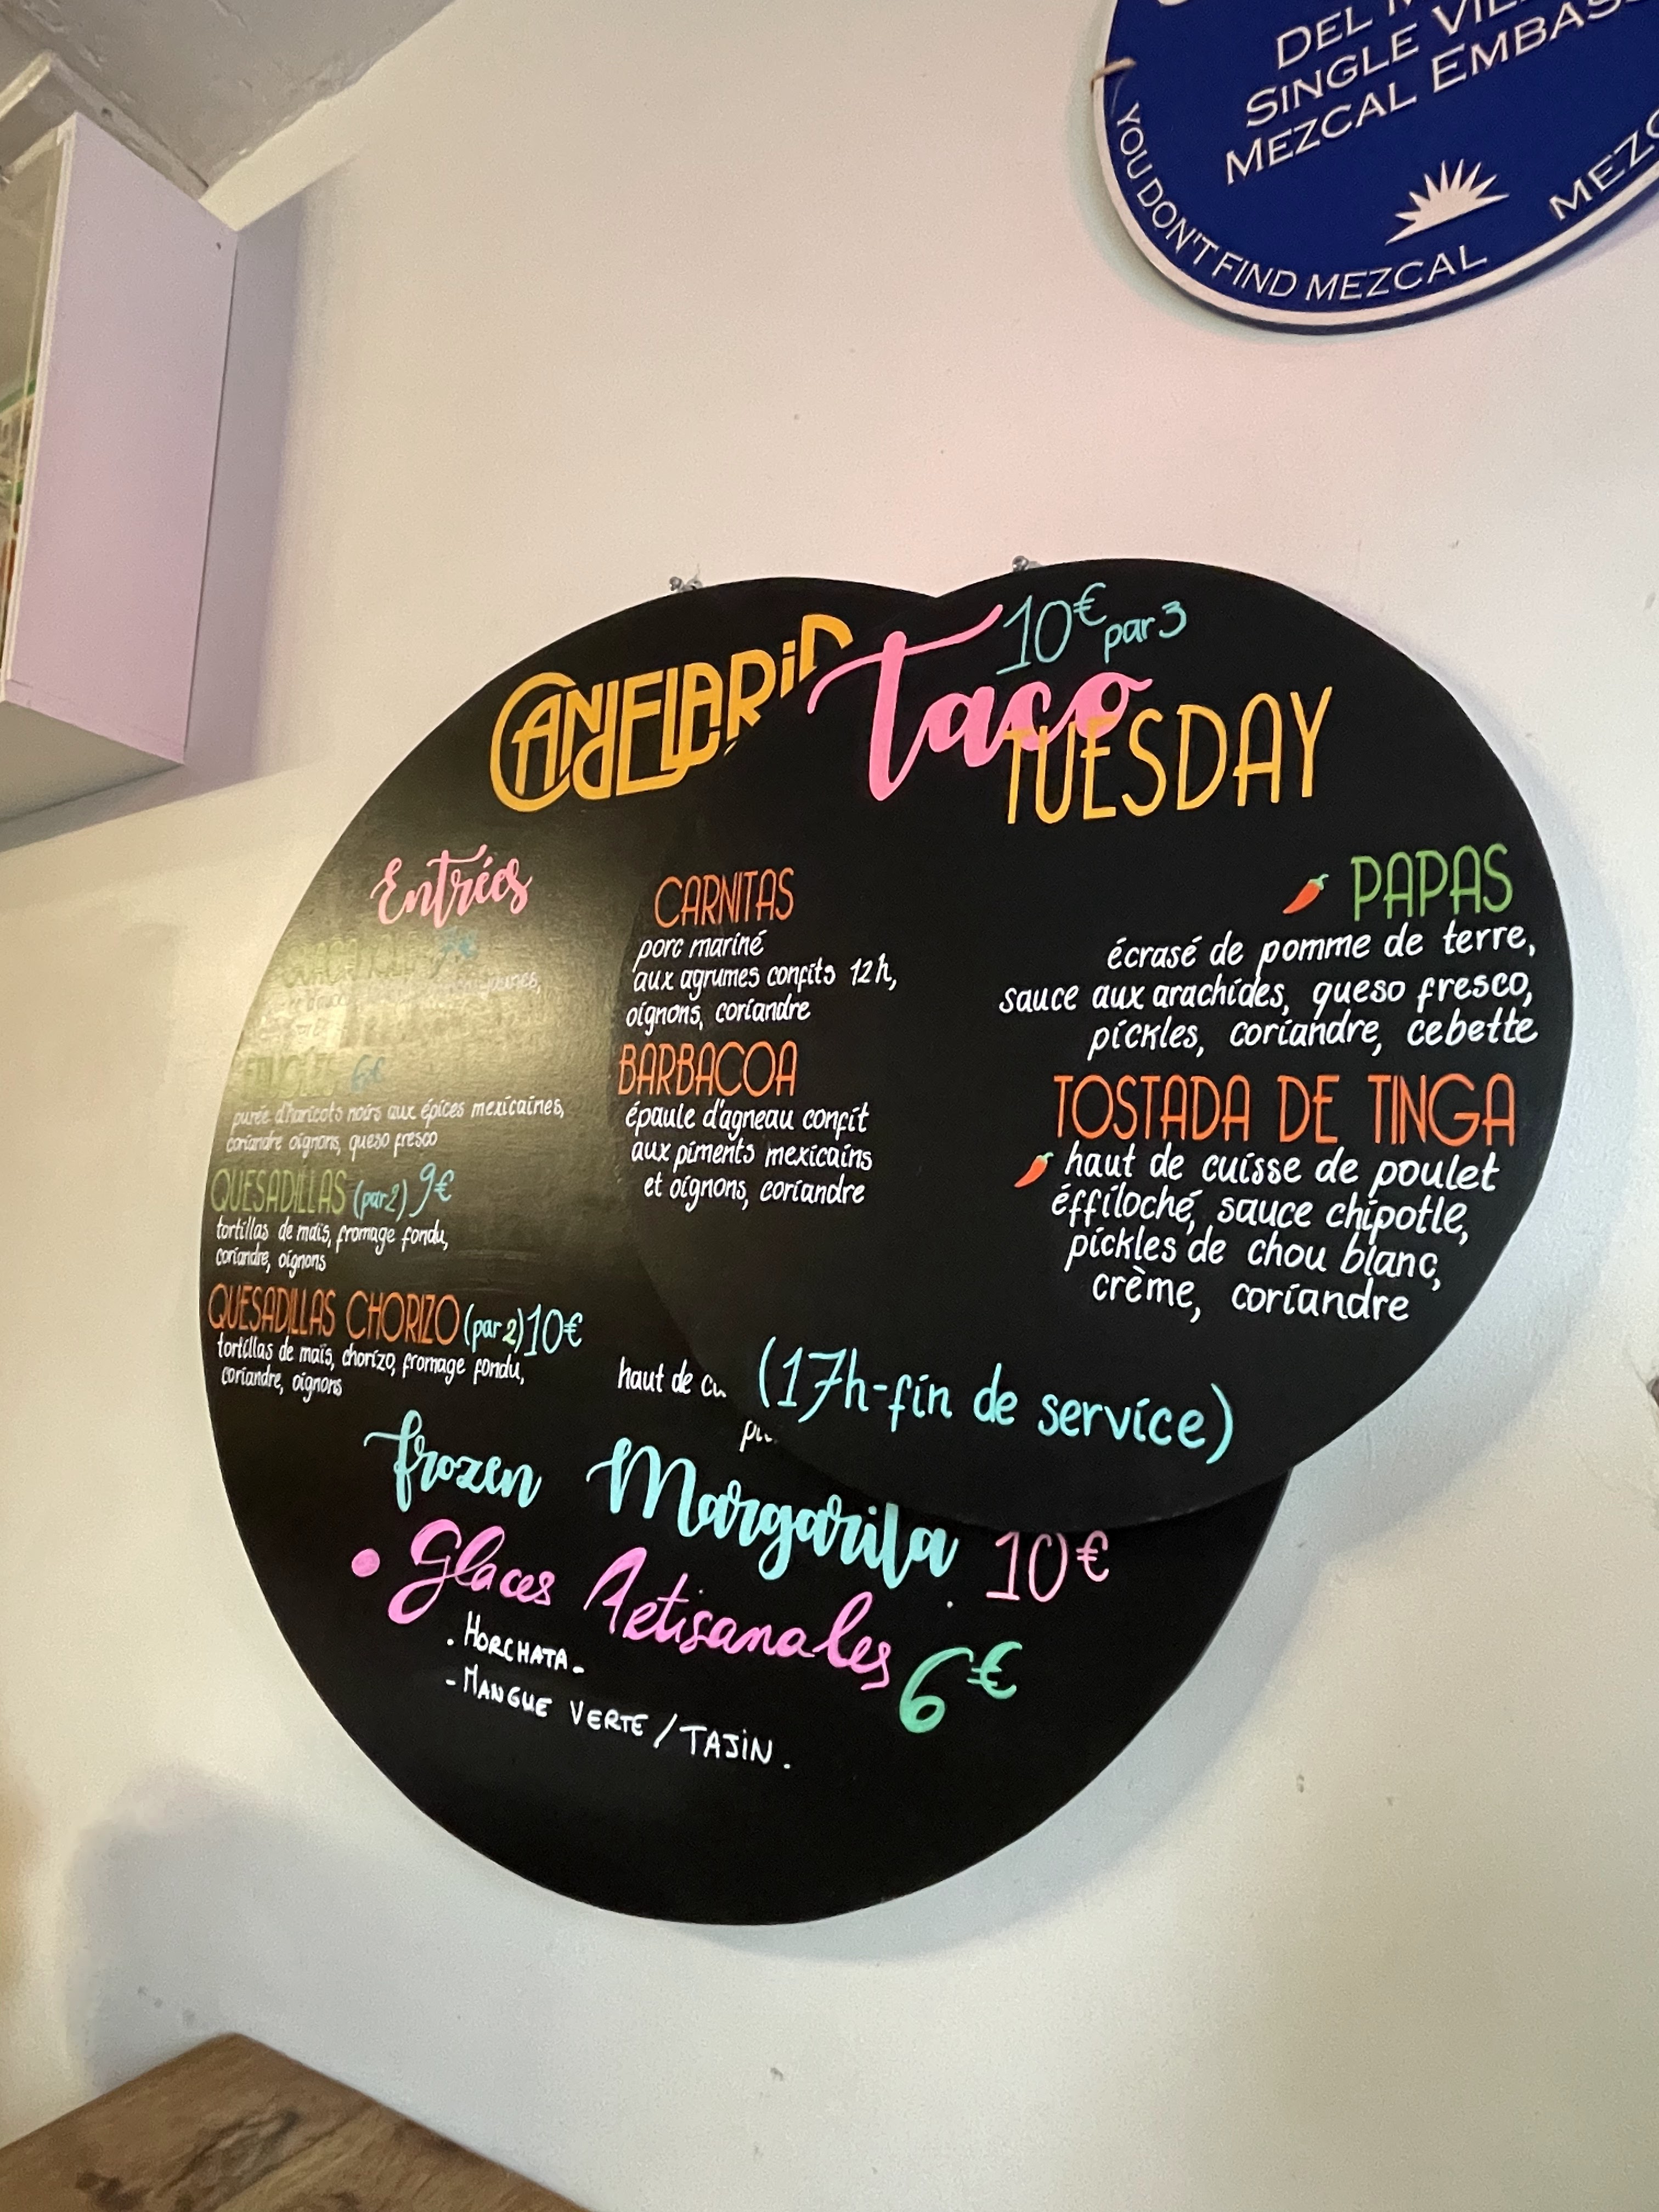 DEL
SINGLE
MEZCAL
YOU DON'T FIND MEZCAL
10€ par 3
Taco
TUESDAY
Entrées
GUACAMOLE
FRIJOLES 6€
purée d'haricots noirs aux épices mexicaines,
coriandre oignons, queso fresco
QUESADILLAS (par 2) 9€
tortillas de maïs, fromage fondu,
coriandre, oignons
QUESADILLAS CHORIZO (par 2) 10€
tortillas de maïs, chorizo, fromage fondu,
coriandre, oignons
CARNITAS
porc mariné
aux agrumes confits 12h,
oignons, coriandre
BARBACOA
épaule d'agneau confit
aux piments mexicains
et oignons, coriandre
PAPAS
écrasé de pomme de terre,
sauce aux arachides, queso fresco,
pickles, coriandre, cebette
TOSTADA DE TINGA
haut de cuisse de poulet
éffiloché, sauce chipotle,
pickles de chou blanc,
crème, coriandre
haut de
(17h-fin de service)
frozen Margarita 10€
• Glaces Artisanales 6€
. HORCHATA -
- MANGUE VERTE / TAJIN .